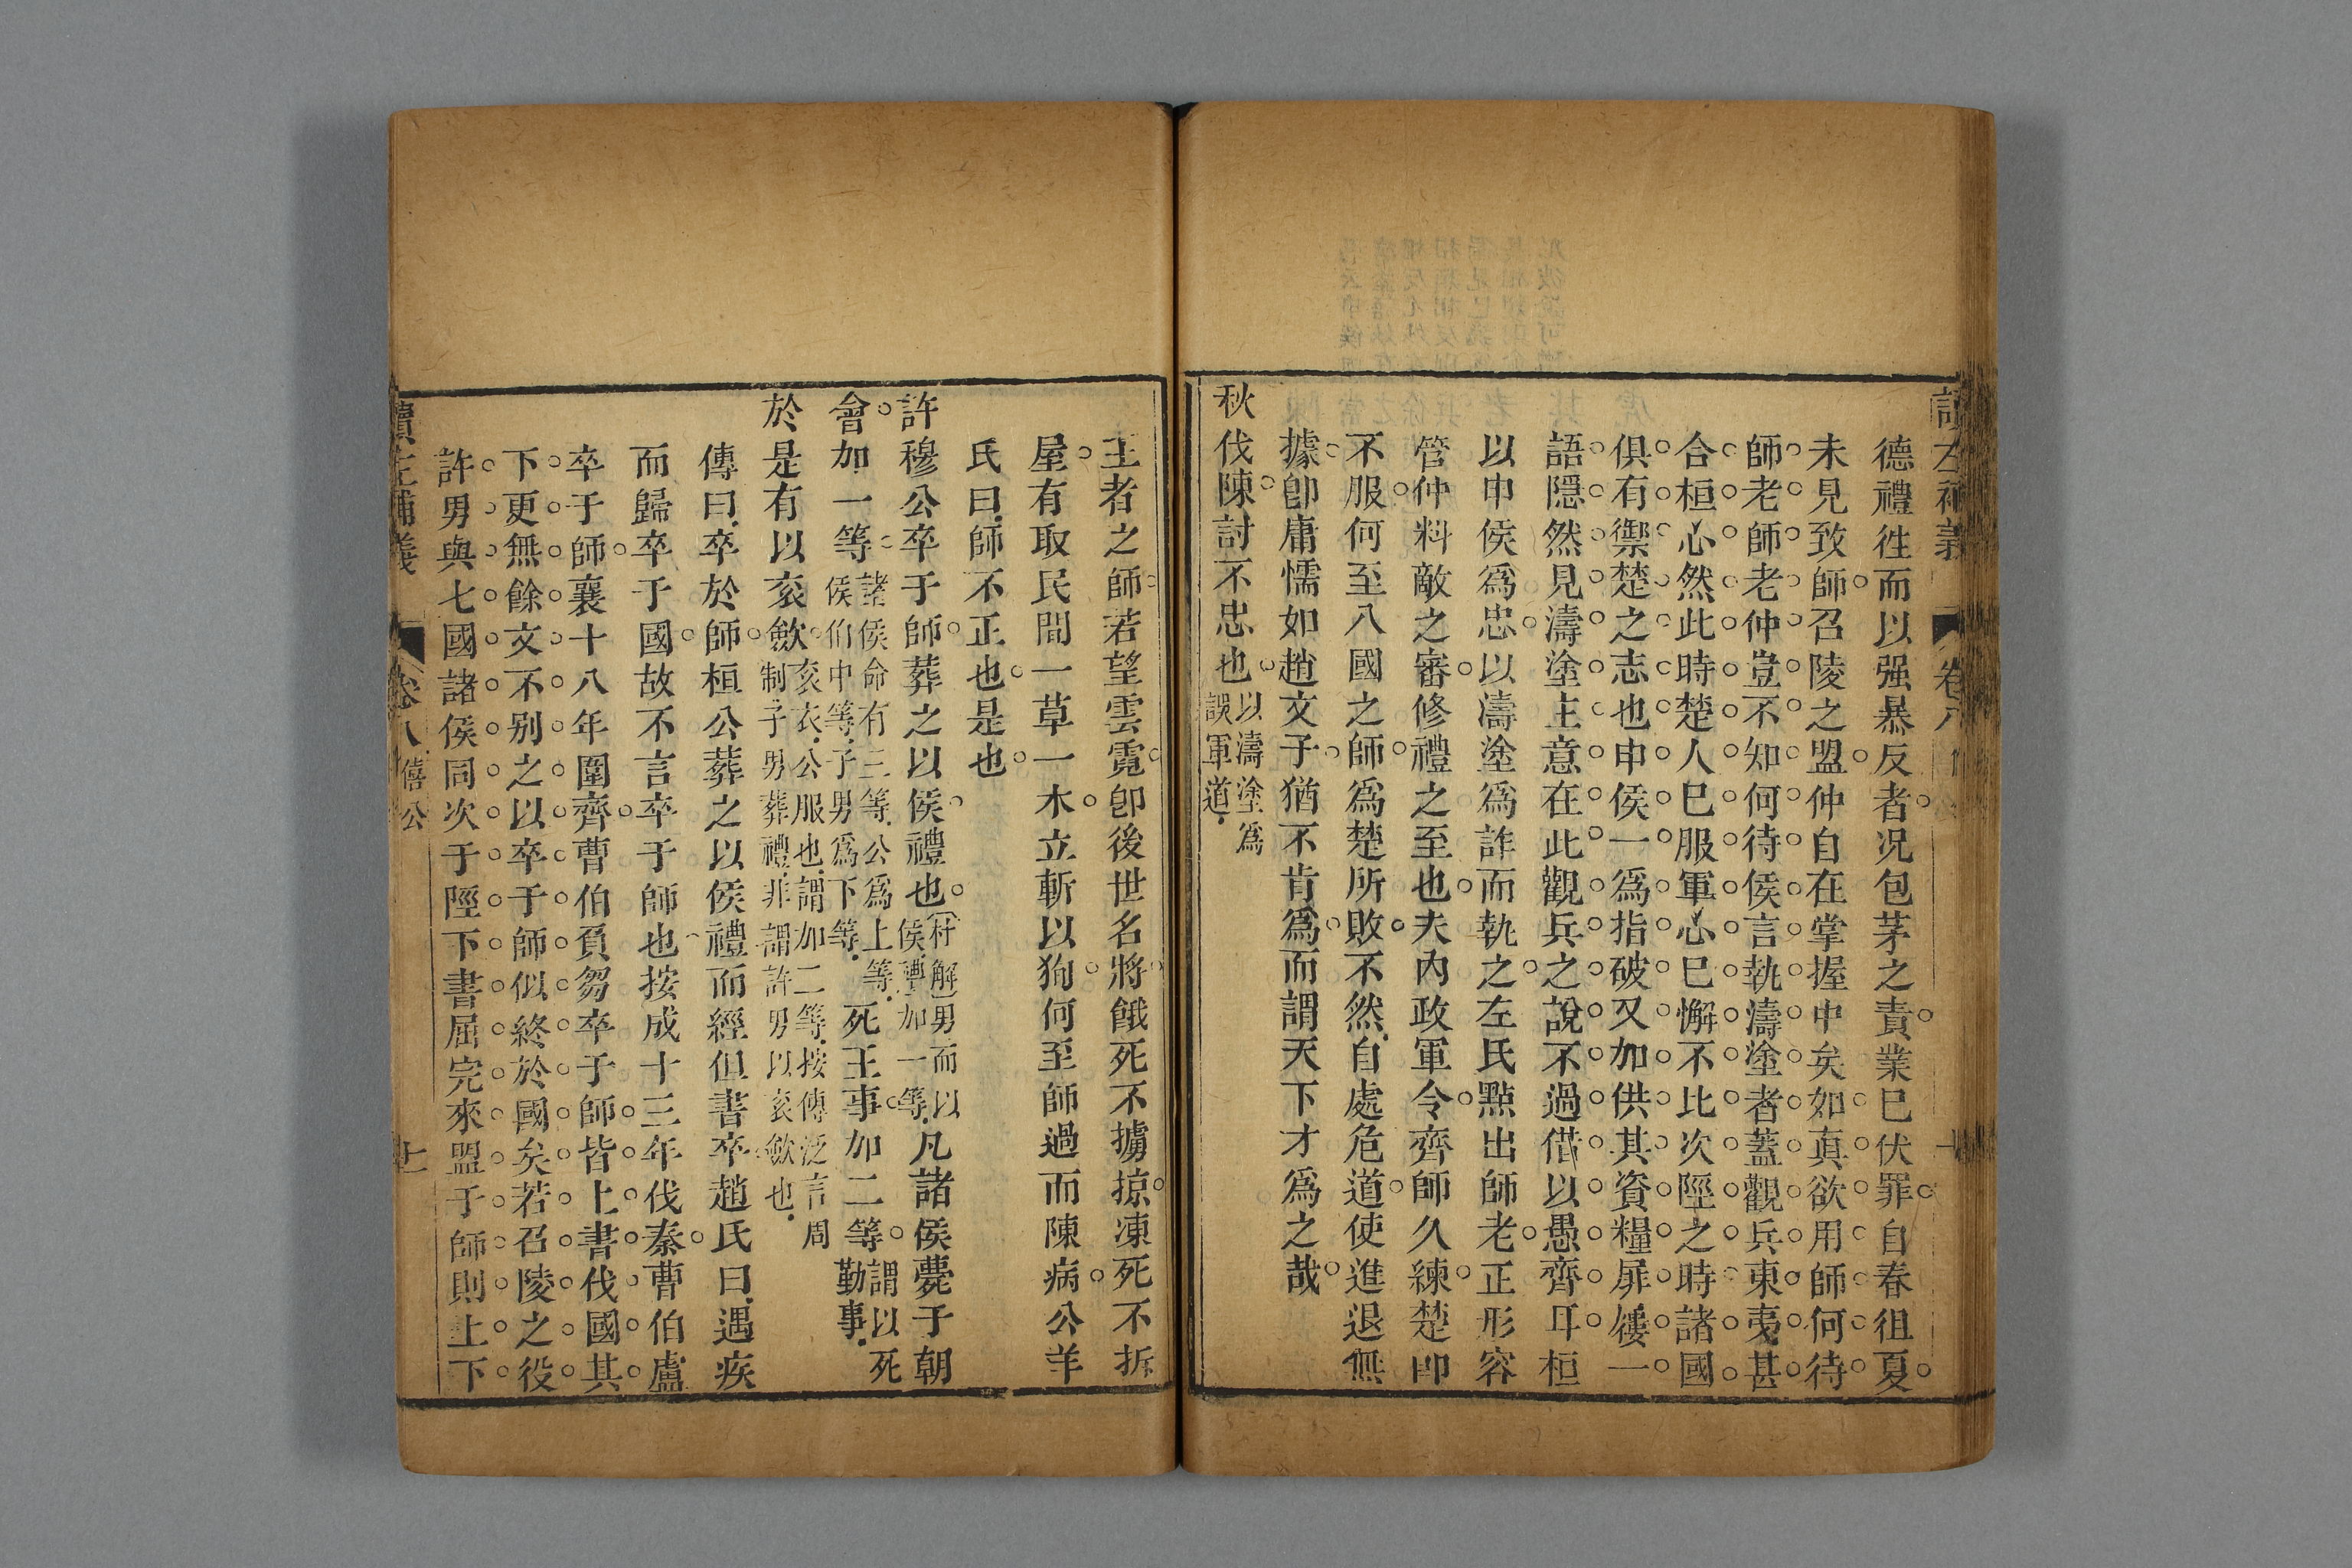 德禮徃而以强暴反者况包茅之責業巳伏罪自春徂夏
未見致師召陵之盟仲自在掌握中矣如真欲用師何待
師老師老仲豈不知何待侯言執濤塗者蓋觀兵東夷甚
合桓心然此時楚人巳服軍心巳懈不比次陘之時諸國
俱有禦楚之志也申侯一爲指破又加供其資糧屝屨一
語隱然見濤塗主意在此觀兵之說不過借以愚齊耳桓
以申侯爲忠以濤塗爲詐而執之左氏點出師老正形容
管仲料敵之審修禮之至也夫內政軍令齊師久練楚卽
不服何至八國之師爲楚所敗不然自處危道使進退無
據卽庸懦如趙文子猶不肯爲而謂天下才爲之哉
秋伐陳討不忠也以濤塗爲誤軍道
王者之師若望雲霓卽後世名將餓死不擄掠凍死不拆
屋有取民間一草一木立斬以狥何至師過而陳病公羊
氏曰師不正也是也
許穆公卒于師葬之以侯禮也杜解男而以侯禮加一等凡諸侯薨于朝
會加一等諸侯命有三等公爲上等侯伯中等子男爲下等死王事加二等謂以死勤事
於是有以衮斂衮衣公服也謂加二等按傳泛言周制子男葬禮非謂許男以衮斂也
傳曰卒於師桓公葬之以侯禮而經但書卒趙氏曰遇疾
而歸卒于國故不言卒于師也按成十三年伐秦曹伯盧
卒于師襄十八年圍齊曹伯負芻卒于師皆上書伐國其
下更無餘文不别之以卒于師似終於國矣若召陵之役
許男與七國諸侯同次于陘下書屈完來盟于師則上下
讀左補義 卷八 僖公